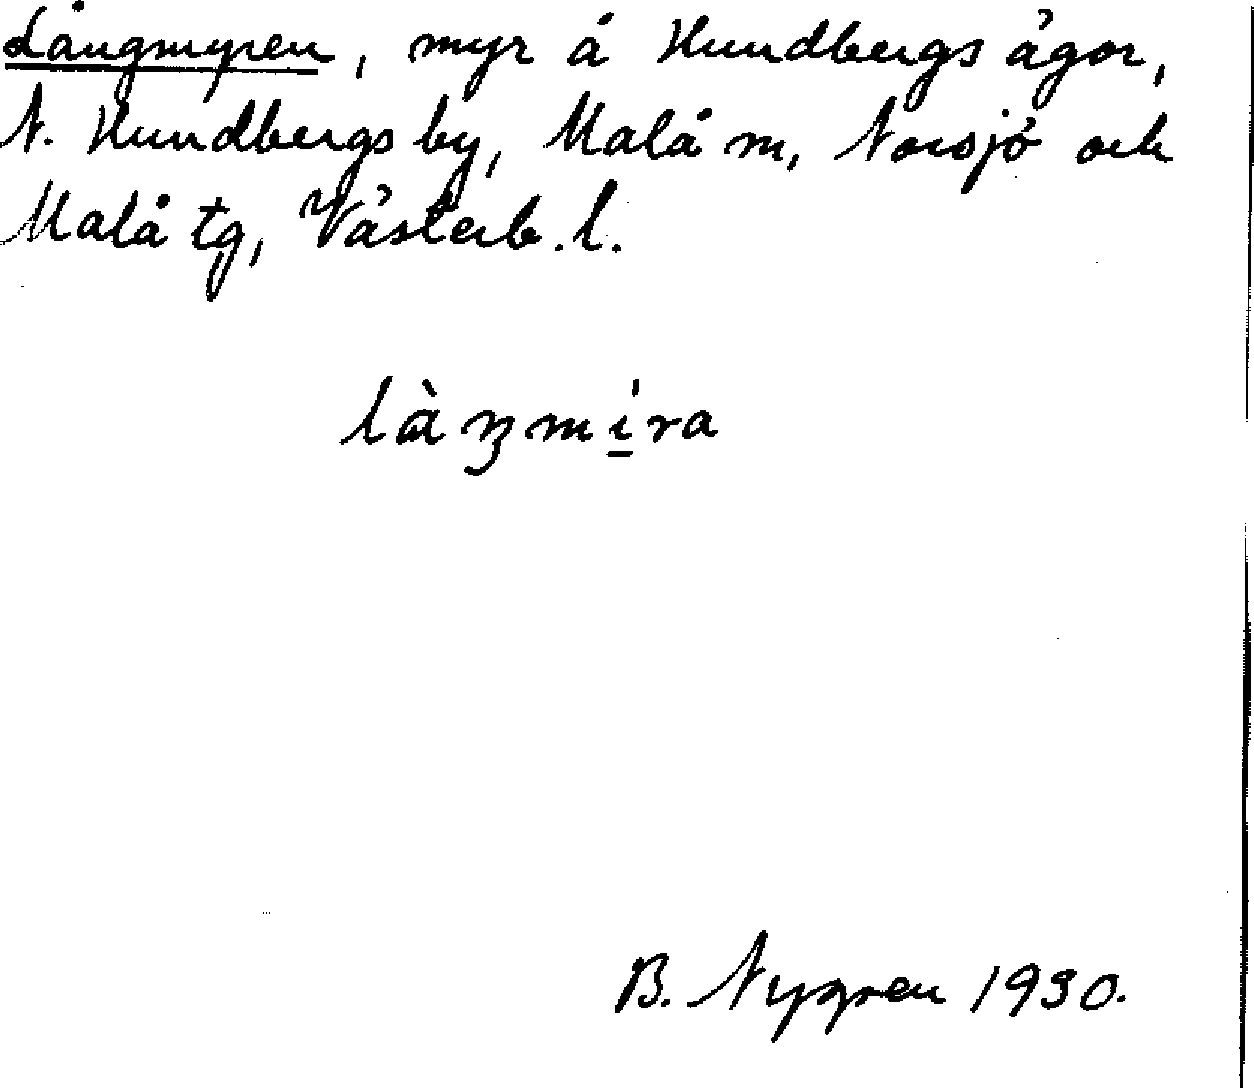 Långmyren, myr å Hundbergs ägor,
N. Hundbergs by, Malå m, Norsjö och
Malå tg, Västerb. l.
làŋmi̲ra
B. Nygren 1930.